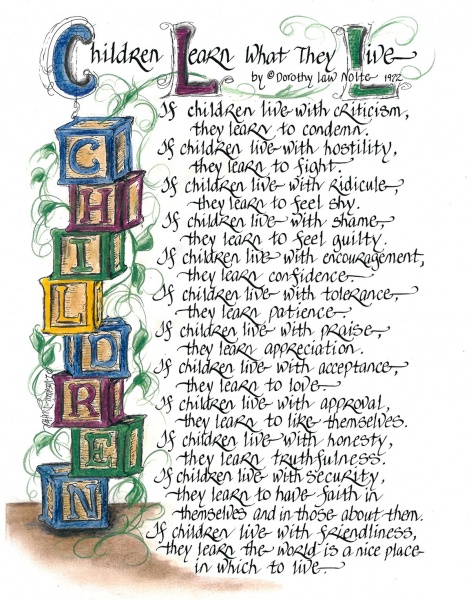 Children Learn What They Live
by © Dorothy Law Nolte 1972
If children live with criticism,
they learn to condemn.
If children live with hostility,
they learn to fight.
If children live with ridicule,
they learn to feel shy.
If children live with shame,
they learn to feel guilty.
If children live with encouragement,
they learn confidence.
If children live with tolerance,
they learn patience.
If children live with praise,
they learn appreciation.
If children live with acceptance,
they learn to love.
If children live with approval,
they learn to like themselves.
If children live with honesty,
they learn truthfulness.
If children live with security,
they learn to have faith in
themselves and in those about them.
If children live with friendliness,
they learn the world is a nice place
in which to live.
C
H
I
L
D
R
E
N